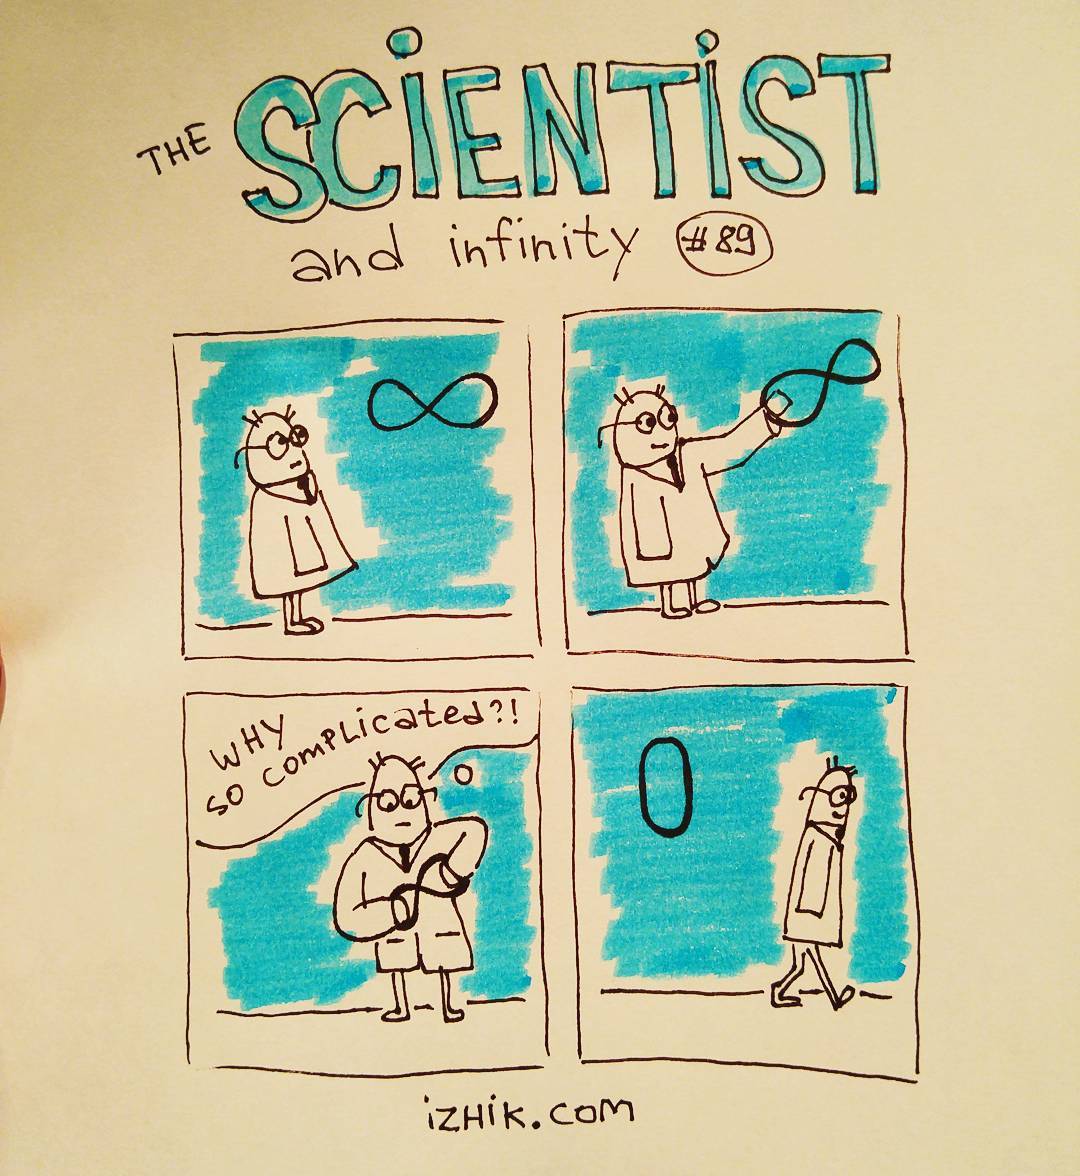 THE SCiENTiST
and infinity #89
WHY
SO COMPLiCATED?!
iZHiK.COM